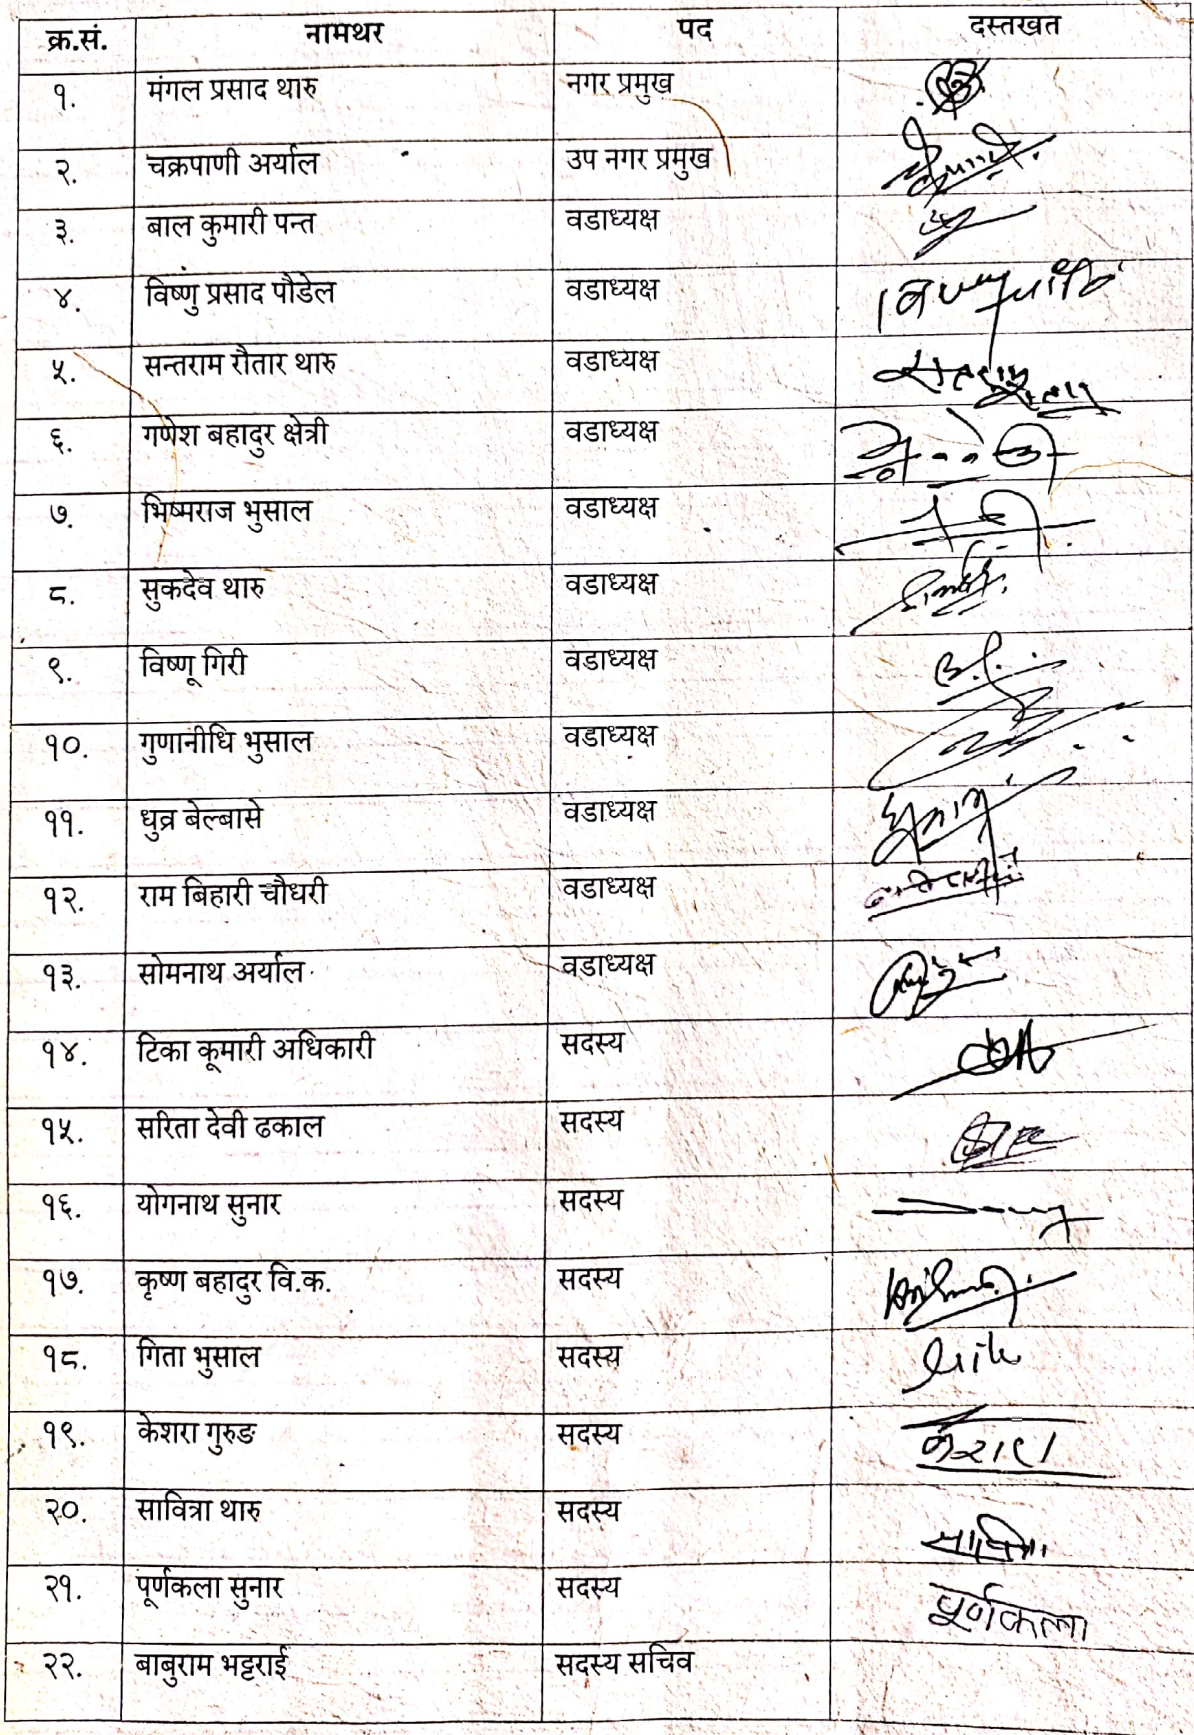 क्र.सं. नामथर पद दस्तखत
१. मंगल प्रसाद थारु नगर प्रमुख
२. चक्रपाणी अर्याल उप नगर प्रमुख
३. बाल कुमारी पन्त वडाध्यक्ष
४. विष्णु प्रसाद पौडेल वडाध्यक्ष
५. सन्तराम रौतार थारु वडाध्यक्ष
६. गणेश बहादुर क्षेत्री वडाध्यक्ष
७. भिष्मराज भुसाल वडाध्यक्ष
८. सुकदेव थारु वडाध्यक्ष
९. विष्णू गिरी वडाध्यक्ष
१०. गुणानीधि भुसाल वडाध्यक्ष
११. धुव्र बेल्बासे वडाध्यक्ष
१२. राम बिहारी चौधरी वडाध्यक्ष
१३. सोमनाथ अर्याल वडाध्यक्ष
१४. टिका कूमारी अधिकारी सदस्य
१५. सरिता देवी ढकाल सदस्य
१६. योगनाथ सुनार सदस्य
१७. कृष्ण बहादुर वि.क. सदस्य
१८. गिता भुसाल सदस्य
१९. केशरा गुरुङ सदस्य
२०. सावित्रा थारु सदस्य
२१. पूर्णकला सुनार सदस्य पूर्णकला
२२. बाबुराम भट्टराई सदस्य सचिव